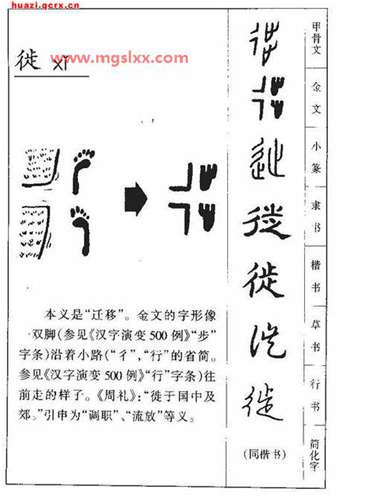 huazi.gcrx.cn
www.mgslxx.com
徙 xǐ
本义是“迁移”。金文的字形像
一双脚(参见《汉字演变500例》“步”
字条)沿着小路(“彳”,“行”的省简。
参见《汉字演变500例》“行”字条)往
前走的样子。《周礼》:“徙于国中及
郊。”引申为“调职”、“流放”等义。
徙
徙
徙
徙
(同楷书)
甲骨文
金文
小篆
隶书
楷书
草书
行书
简化字